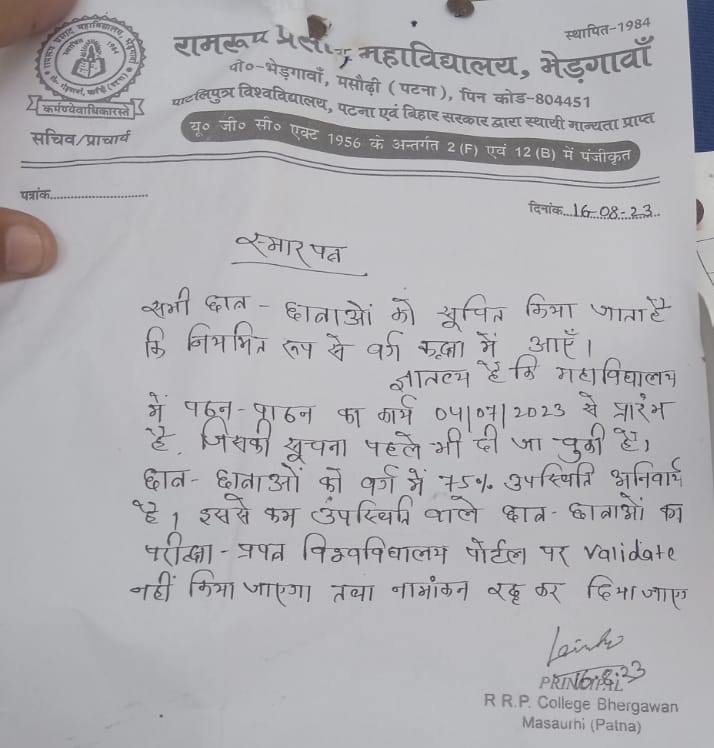 स्थापित-1984
रामरूप प्रसाद महाविद्यालय, भेड़गावाँ
पो०-भेड़गावाँ, मसौढ़ी (पटना), पिन कोड-804451
पाटलिपुत्र विश्वविद्यालय, पटना एवं बिहार सरकार द्वारा स्थायी मान्यता प्राप्त
यू० जी० सी० एक्ट 1956 के अन्तर्गत 2 (F) एवं 12 (B) में पंजीकृत
कर्मण्येवाधिकारस्ते
सचिव/प्राचार्य
पत्रांक............................
दिनांक...16-08-23..
स्मार पत्र
सभी छात्र - छात्राओं को सूचित किया जाता है
कि नियमित रूप से वर्ग कक्षा में आएँ।
ज्ञातव्य है कि महाविद्यालय
में पठन-पाठन का कार्य 04/07/2023 से प्रारंभ
है. जिसकी सूचना पहले भी दी जा चुकी है,
छात्र- छात्राओं को वर्ग में 75% उपस्थिति अनिवार्य
है। इससे कम उपस्थिति वाले छात्र-छात्राओं का
परीक्षा-प्रपत्र विश्वविद्यालय पोर्टल पर validate
नहीं किया जाएगा तथा नामांकन रद्द कर दिया जाए
16.8.23
PRINCIPAL
R R.P. College Bhergawan
Masaurhi (Patna)